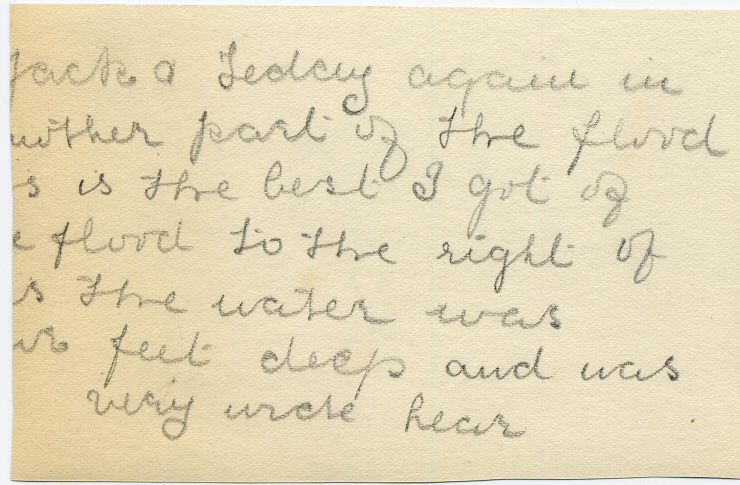 Jack & Teddy again in
nother part of the flood
s is the best I got of
e flood to the right of
is the water was
feet deep and was
very wide hear